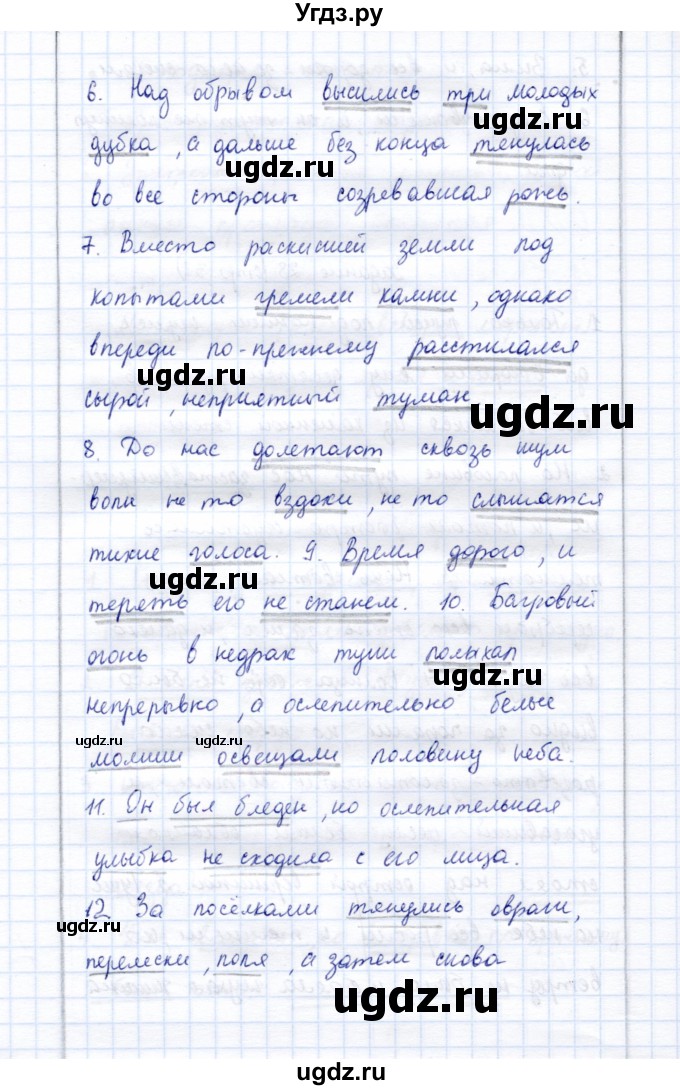 Угдз.ру
6. Над обрывом высились три молодых
ugdz.ru
дубка, а дальше без конца тянулась
ugdz.ru
во все стороны созревавшая рожь.
7. Вместо раскисшей земли под
копытами гремели камни, однако
впереди по-прежнему расстилался
ugdz.ru
сырой, неприятный туман
ugdz.ru
8. До нас долетают сквозь шум
волн не то вздохи, не то слышатся
тихие голоса. 9. Время дорого, и
ugdz.ru
терять его не станем. 10. Багровый
огонь в недрах тучи полыхал
ugdz.ru
непрерывно, а ослепительно белые
ugdz.ru
ugdz.ru
молнии освещали половину неба.
11. Он был бледен, но ослепительная
улыбка не сходила с его лица.
12 За посёлками тянулись овраги,
ugdz.ru
перелески, поля, а затем снова
ugdz.ru
ugdz.ru
ugdz.ru